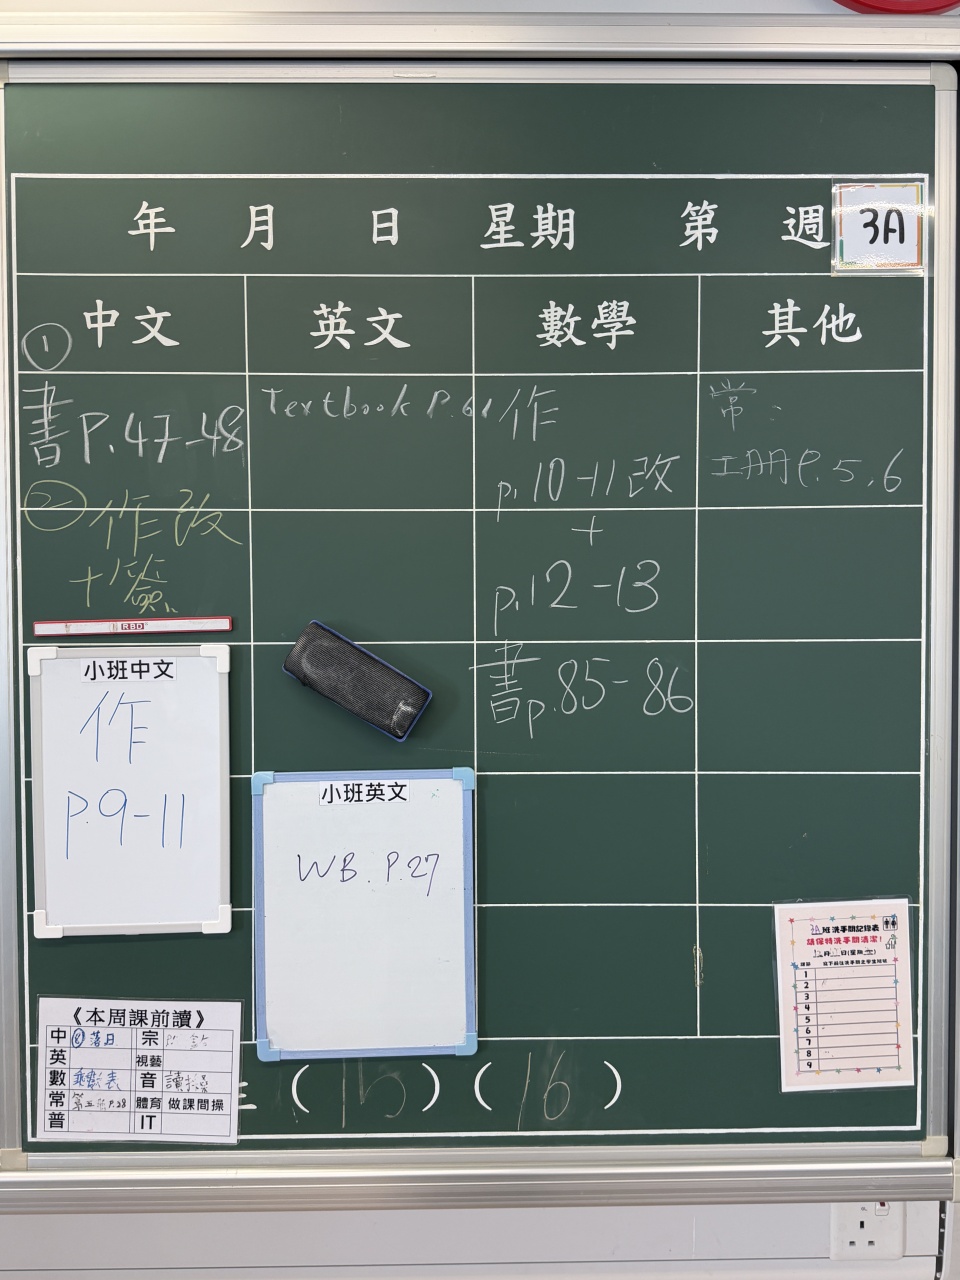 年 月 日 星期 第 週 3A
中文 英文 數學 其他
①
書P.47-48
②作改
+簽
Textbook P.61
作
p.10-11改
+
p.12-13
書p.85-86
常:
工冊P.5,6
RBD
小班中文
作
P.9-11
小班英文
WB. P.27
3A班洗手間記錄表
請保持洗手間清潔!
12月 日(星期 )
1
2
3
4
5
6
7
8
9
《本周課前讀》
中 落日 宗
英 視藝
數 乘數表 音
常 P.28 體育 做課間操
普 IT
(15)(16)